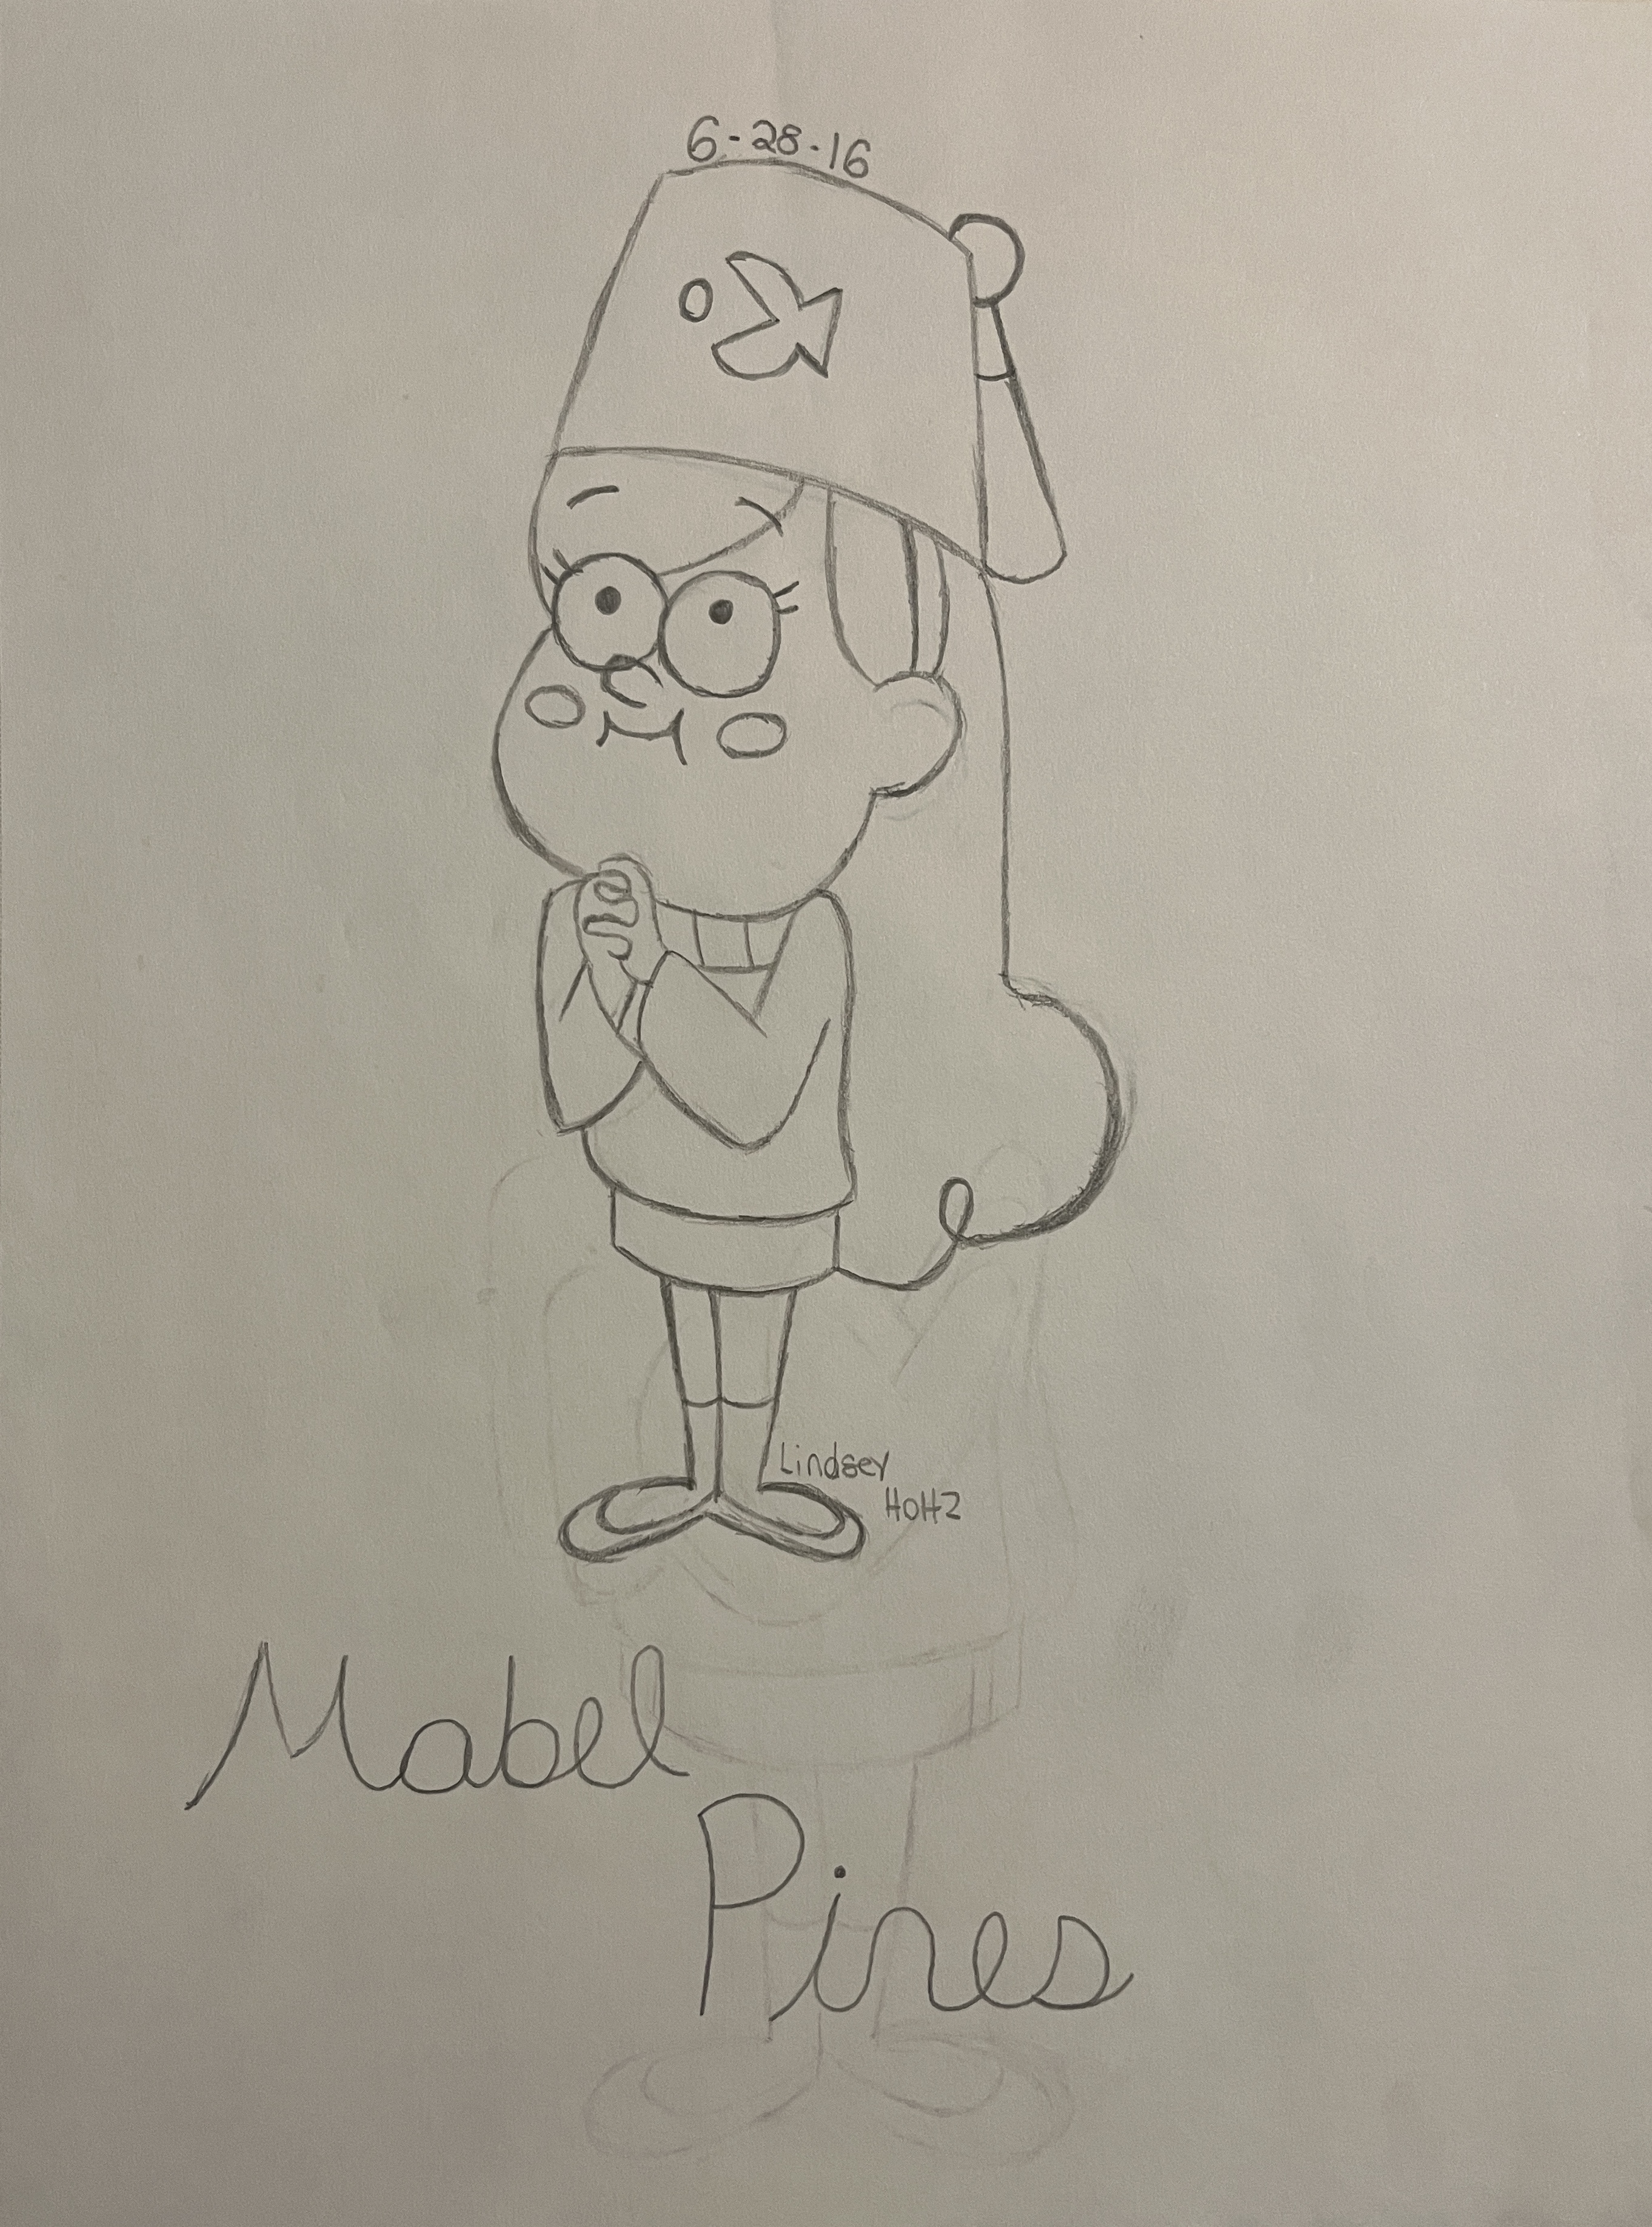 6-28-16
Lindsey
HOH2
Mabel
Pines